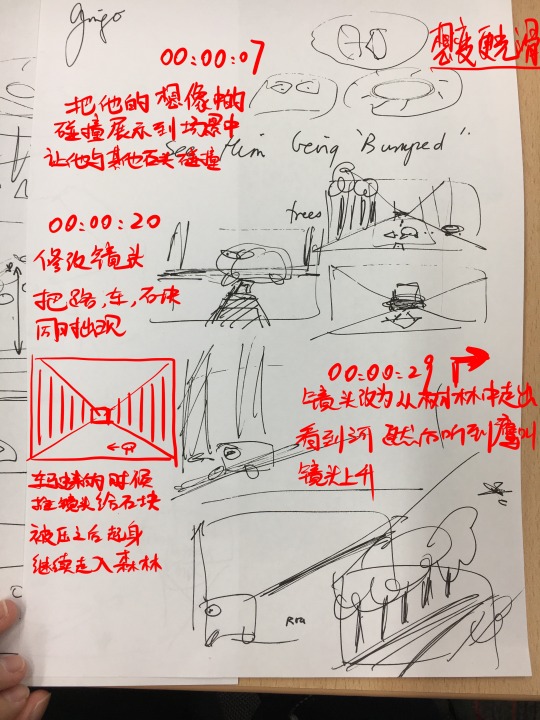 00:00:07
把他的想像中的
碰撞展示到场景中
让他与其他石头碰撞
See Him being 'Bumped'
trees
00:00:20
修改镜头
把路,车,石块
同时出现
00:00:29
镜头改为从树林中走出
看到河 然后听到鹰叫
镜头上升
车过来的时候
拉镜头给石块
被压之后起身
继续走入森林